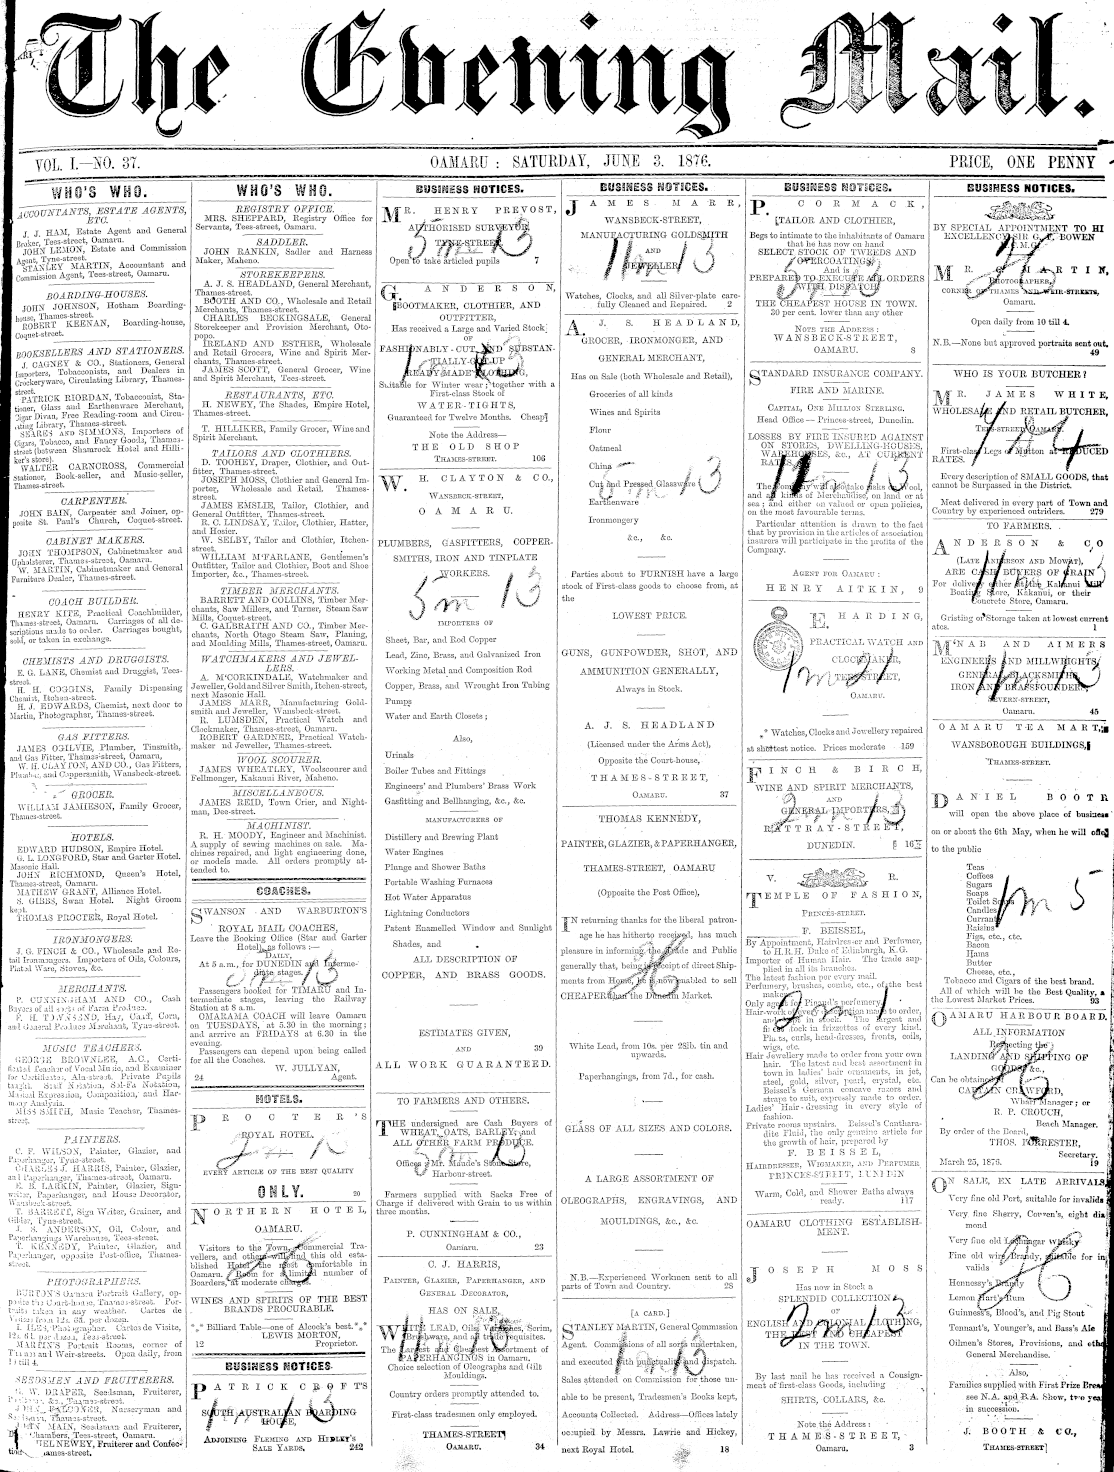 The Evening Mail.
VOL. I.—NO. 37.
OAMARU : SATURDAY, JUNE 3. 1876.
PRICE, ONE PENNY
WHO'S WHO.
ACCOUNTANTS, ESTATE AGENTS,
ETC.
J. J. HAM, Estate Agent and General
Broker, Tees-street, Oamaru.
JOHN LEMON, Estate and Commission
Agent, Tyne-street.
STANLEY MARTIN, Accountant and
Commission Agent, Tees-street, Oamaru.
BOARDING-HOUSES.
JOHN JOHNSON, Hotham Boarding-
house, Thames-street.
ROBERT KEENAN, Boarding-house,
Coquet-street.
BOOKSELLERS AND STATIONERS.
J. CAGNEY & CO., Stationers, General
Importers, Tobacconists, and Dealers in
Crockeryware, Circulating Library, Thames-
street.
PATRICK RIORDAN, Tobacconist, Sta-
tioner, Glass and Earthenware Merchant,
Cigar Divan, Free Reading-room and Circu-
lating Library, Thames-street.
SEARES AND SIMMONS, Importers of
Cigars, Tobacco, and Fancy Goods, Thames-
street (between Shamrock Hotel and Hilli-
ker's store).
WALTER CARNCROSS, Commercial
Stationer, Book-seller, and Music-seller,
Thames-street.
CARPENTER.
JOHN BAIN, Carpenter and Joiner, op-
posite St. Paul's Church, Coquet-street.
CABINET MAKERS.
JOHN THOMPSON, Cabinetmaker and
Upholsterer, Thames-street, Oamaru.
W. MARTIN, Cabinetmaker and General
Furniture Dealer, Thames-street.
COACH BUILDER.
HENRY KITE, Practical Coachbuilder,
Thames-street, Oamaru. Carriages of all de-
scriptions made to order. Carriages bought,
sold, or taken in exchange.
CHEMISTS AND DRUGGISTS.
E. G. LANE, Chemist and Druggist, Tees-
street.
H. H. COGGINS, Family Dispensing
Chemist, Itchen-street.
H. J. EDWARDS, Chemist, next door to
Martin, Photographer, Thames-street.
GAS FITTERS.
JAMES OGILVIE, Plumber, Tinsmith,
and Gas Fitter, Thames-street, Oamaru,
W. H. CLAYTON, AND CO., Gas Fitters,
Plumbers, and Coppersmith, Wansbeck-street.
GROCER.
WILLIAM JAMIESON, Family Grocer,
Thames-street.
HOTELS.
EDWARD HUDSON, Empire Hotel.
G. L. LONGFORD, Star and Garter Hotel.
Masonic Hall.
JOHN RICHMOND, Queen's Hotel,
Thames-street, Oamaru.
MATHEW GRANT, Alliance Hotel.
S. GIBBS, Swan Hotel. Night Groom
kept.
THOMAS PROCTER, Royal Hotel.
IRONMONGERS.
J. G. FINCH & CO., Wholesale and Re-
tail Ironmongers. Importers of Oils, Colours,
Plated Ware, Stoves, &c.
MERCHANTS.
P. CUNNINGHAM AND CO., Cash
Buyers of all sorts of Farm Produce.
F. H. TOWNSAND, Hay, Chaff, Corn,
and General Produce Merchant, Tyne-street.
MUSIC TEACHERS.
GEORGE BROWNLEE, A.C., Certi-
ficated Teacher of Vocal Music, and Examiner
for Certificates, Aln-street. Private Pupils
taught. Staff Notation, Sol-Fa Notation,
Musical Expression, Composition, and Har-
mony Analysis.
MISS SMITH, Music Teacher, Thames-
street.
PAINTERS.
C. F. WILSON, Painter, Glazier, and
Paperhanger, Tyne-street.
CHARLES J. HARRIS, Painter, Glazier,
and Paperhanger, Thames-street, Oamaru.
E. B. LARKIN, Painter, Glazier, Sign-
writer, Paperhanger, and House Decorator,
Wansbeck-street.
T. BARRETT, Sign Writer, Grainer, and
Gilder, Tyne-street.
J. S. ANDERSON, Oil, Colour, and
Paperhangings Warehouse, Tees-street.
T. KENNEDY, Painter, Glazier, and
Paperhanger, opposite Post-office, Thames-
street.
PHOTOGRAPHERS.
BURTON'S Oamaru Portrait Gallery, op-
posite the Court-house, Thames-street. Por-
traits taken in any weather. Cartes de
Visites from 12s. 6d. per dozen.
Photographer. Cartes de Visite,
12s. 6d. per dozen, Tees-street.
MARTIN'S Portrait Rooms, corner of
Thames and Weir-streets. Open daily, from
10 till 4.
SEEDSMEN AND FRUITERERS.
G. W. DRAPER, Seedsman, Fruiterer,
&c., Thames-street.
FALCONER, Nurseryman and
Seedsman, Thames-street.
MAIN, Seedsman and Fruiterer,
Chambers, Tees-street, Oamaru.
NEWEY, Fruiterer and Confec-
tioner, Thames-street.
WHO'S WHO.
REGISTRY OFFICE.
MRS. SHEPPARD, Registry Office for
Servants, Tees-street, Oamaru.
SADDLER.
JOHN RANKIN, Sadler and Harness
Maker, Maheno.
STOREKEEPERS.
A. J. S. HEADLAND, General Merchant,
Thames-street.
BOOTH AND CO., Wholesale and Retail
Merchants, Thames-street.
CHARLES BECKINGSALE, General
Storekeeper and Provision Merchant, Oto-
popo.
IRELAND AND ESTHER, Wholesale
and Retail Grocers, Wine and Spirit Mer-
chants, Thames-street.
JAMES SCOTT, General Grocer, Wine
and Spirit Merchant, Tees-street.
RESTAURANTS, ETC.
H. NEWEY, The Shades, Empire Hotel,
Thames-street.
T. HILLIKER, Family Grocer, Wine and
Spirit Merchant.
TAILORS AND CLOTHIERS.
D. TOOHEY, Draper, Clothier, and Out-
fitter, Thames-street.
JOSEPH MOSS, Clothier and General Im-
porter, Wholesale and Retail. Thames-
street.
JAMES EMSLIE, Tailor, Clothier, and
General Outfitter, Thames-street.
R. C. LINDSAY, Tailor, Clothier, Hatter,
and Hosier.
W. SELBY, Tailor and Clothier, Itchen-
street.
WILLIAM M'FARLANE, Gentlemen's
Outfitter, Tailor and Clothier, Boot and Shoe
Importer, &c., Thames-street.
TIMBER MERCHANTS.
BARRETT AND COLLINS, Timber Mer-
chants, Saw Millers, and Turner, Steam Saw
Mills, Coquet-street.
C. GALBRAITH AND CO., Timber Mer-
chants, North Otago Steam Saw, Planing,
and Moulding Mills, Thames-street, Oamaru.
WATCHMAKERS AND JEWEL-
LERS.
A. M'CORKINDALE, Watchmaker and
Jeweller, Gold and Silver Smith, Itchen-street,
next Masonic Hall.
JAMES MARR, Manufacturing Gold-
smith and Jeweller, Wansbeck-street.
R. LUMSDEN, Practical Watch and
Clockmaker, Thames-street, Oamaru.
ROBERT GARDNER, Practical Watch-
maker nd Jeweller, Thames-street.
WOOL SCOURER.
JAMES WHEATLEY, Woolscourer and
Fellmonger, Kakanui River, Maheno.
MISCELLANEOUS.
JAMES REID, Town Crier, and Night-
man, Dee-street.
MACHINIST.
R. H. MOODY, Engineer and Machinist.
A supply of sewing machines on sale. Ma-
chines repaired, and light engineering done,
or models made. All orders promptly at-
tended to.
COACHES.
SWANSON AND WARBURTON'S
ROYAL MAIL COACHES,
Leave the Booking Office (Star and Garter
Hotel), as follows :—
DAILY,
At 5 a.m., for DUNEDIN and Interme-
diate stages.
Passengers booked for TIMARU and In-
termediate stages, leaving the Railway
Station at 8 a.m.
OMARAMA COACH will leave Oamaru
on TUESDAYS, at 5.30 in the morning;
and arrive an FRIDAYS at 6.30 in the
evening.
Passengers can depend upon being called
for all the Coaches.
W. JULLYAN,
24 Agent.
HOTELS.
PROCTER'S
ROYAL HOTEL.
EVERY ARTICLE OF THE BEST QUALITY
ONLY. 20
NORTHERN HOTEL,
OAMARU.
Visitors to the Town, Commercial Tra-
vellers, and others will find this old estab-
lished Hotel the most comfortable in
Oamaru. Room for a limited number of
Boarders, at moderate charges.
WINES AND SPIRITS OF THE BEST
BRANDS PROCURABLE.
*** Billiard Table—one of Alcock's best.***
LEWIS MORTON,
12 Proprietor.
BUSINESS NOTICES
PATRICK CROFTS
SOUTH AUSTRALIAN BOARDING
HOUSE,
ADJOINING FLEMING AND HEDLEY'S
SALE YARDS. 242
BUSINESS NOTICES.
MR. HENRY PREVOST,
AUTHORISED SURVEYOR,
TYNE-STREET.
Open to take articled pupils 7
G. ANDERSON,
BOOTMAKER, CLOTHIER, AND
OUTFITTER,
Has received a Large and Varied Stock
OF
FASHIONABLY-CUT AND SUBSTAN-
TIALLY-GOT-UP
READY-MADE CLOTHING,
Suitable for Winter wear; together with a
First-class Stock of
WATER-TIGHTS,
Guaranteed for Twelve Months. Cheap
Note the Address—
THE OLD SHOP
THAMES-STREET. 106
W. H. CLAYTON & CO.,
WANSBECK-STREET,
OAMARU.
PLUMBERS, GASFITTERS, COPPER-
SMITHS, IRON AND TINPLATE
WORKERS.
IMPORTERS OF
Sheet, Bar, and Rod Copper
Lead, Zinc, Brass, and Galvanised Iron
Working Metal and Composition Rod
Copper, Brass, and Wrought Iron Tubing
Pumps
Water and Earth Closets;
Also,
Urinals
Boiler Tubes and Fittings
Engineers' and Plumbers' Brass Work
Gasfitting and Bellhanging, &c., &c.
MANUFACTURERS OF
Distillery and Brewing Plant
Water Engines
Plunge and Shower Baths
Portable Washing Furnaces
Hot Water Apparatus
Lightning Conductors
Patent Enamelled Window and Sunlight
Shades, and
ALL DESCRIPTION OF
COPPER, AND BRASS GOODS.
ESTIMATES GIVEN,
AND 39
ALL WORK GUARANTEED.
TO FARMERS AND OTHERS.
THE undersigned are Cash Buyers of
WHEAT, OATS, BARLEY, and
ALL OTHER FARM PRODUCE.
Offices: Mr. Maude's Stone Store,
Harbour-street.
Farmers supplied with Sacks Free of
Charge if delivered with Grain to us within
three months.
P. CUNNINGHAM & CO.,
Oamaru. 23
C. J. HARRIS,
PAINTER, GLAZIER, PAPERHANGER, AND
GENERAL DECORATOR,
HAS ON SALE,
WHITE LEAD, Oils, Varnishes, Scrim,
Brushware, and all trade requisites.
The Largest and Cheapest Assortment of
PAPERHANGINGS in Oamaru.
Choice selection of Oleographs and Gilt
Mouldings.
Country orders promptly attended to.
First-class tradesmen only employed.
THAMES-STREET
OAMARU. 34
BUSINESS NOTICES.
JAMES MARR,
WANSBECK-STREET,
MANUFACTURING GOLDSMITH
AND
JEWELLER.
Watches, Clocks, and all Silver-plate care-
fully Cleaned and Repaired. 2
A. J. S. HEADLAND,
GROCER, IRONMONGER, AND
GENERAL MERCHANT,
Has on Sale (both Wholesale and Retail),
Groceries of all kinds
Wines and Spirits
Flour
Oatmeal
China
Cut and Pressed Glassware
Earthenware
Ironmongery
&c., &c.
Parties about to FURNISH have a large
stock of First-class goods to choose from, at
the
LOWEST PRICE.
GUNS, GUNPOWDER, SHOT, AND
AMMUNITION GENERALLY,
Always in Stock.
A. J. S. HEADLAND
(Licensed under the Arms Act),
Opposite the Court-house,
THAMES-STREET,
OAMARU. 37
THOMAS KENNEDY,
PAINTER, GLAZIER, & PAPERHANGER,
THAMES-STREET, OAMARU
(Opposite the Post Office),
IN returning thanks for the liberal patron-
age he has hitherto received, has much
pleasure in informing the Trade and Public
generally that, being in receipt of direct Ship-
ments from Home, he is now enabled to sell
CHEAPER than the Dunedin Market.
White Lead, from 10s. per 28lb. tin and
upwards.
Paperhangings, from 7d., for cash.
GLASS OF ALL SIZES AND COLORS.
A LARGE ASSORTMENT OF
OLEOGRAPHS, ENGRAVINGS, AND
MOULDINGS, &c., &c.
N.B.—Experienced Workmen sent to all
parts of Town and Country. 28
[A CARD.]
STANLEY MARTIN, General Commission
Agent. Commissions of all sorts undertaken,
and executed with punctuality and dispatch.
Sales attended on Commission for those un-
able to be present, Tradesmen's Books kept,
Accounts Collected. Address—Offices lately
occupied by Messrs. Lawrie and Hickey,
next Royal Hotel. 18
BUSINESS NOTICES.
P. CORMACK,
TAILOR AND CLOTHIER,
Begs to intimate to the inhabitants of Oamaru
that he has now on hand
SELECT STOCK OF TWEEDS AND
OVERCOATINGS
And is
PREPARED TO EXECUTE ALL ORDERS
WITH DISPATCH
THE CHEAPEST HOUSE IN TOWN.
30 per cent. lower than any other
NOTE THE ADDRESS:
WANSBECK-STREET,
OAMARU. 8
STANDARD INSURANCE COMPANY.
FIRE AND MARINE.
CAPITAL, ONE MILLION STERLING.
Head Office—Princes-street, Dunedin.
LOSSES BY FIRE INSURED AGAINST
ON STORES, DWELLING-HOUSES,
WAREHOUSES, &c., AT CURRENT
RATES.
The Company will also take risks on Wool,
and all kinds of Merchandise, on land or at
sea; and either on valued or open policies,
on the most favourable terms.
Particular attention is drawn to the fact
that by provision in the articles of association
insurers will participate in the profits of the
Company.
AGENT FOR OAMARU:
HENRY AITKIN, 9
E. HARDING,
PRACTICAL WATCH AND
CLOCKMAKER,
TEES-STREET,
OAMARU.
*** Watches, Clocks and Jewellery repaired
at shortest notice. Prices moderate 159
FINCH & BIRCH,
WINE AND SPIRIT MERCHANTS,
AND
GENERAL IMPORTERS,
RATTRAY-STREET,
DUNEDIN. 16
V. R.
TEMPLE OF FASHION,
PRINCES-STREET.
F. BEISSEL,
By Appointment, Hairdresser and Perfumer,
to H.R.H. Duke of Edinburgh, K.G.
Importer of Human Hair. The trade sup-
plied in all its branches.
The latest fashion per every mail.
Perfumery, brushes, combs, etc., of the best
makers.
Only agent for Rimmel's perfumery.
Hair-work of every description made to order,
and kept in stock. The largest and
finest stock in frizettes of every kind.
Plaits, curls, head-dresses, fronts, coils,
wigs, etc.
Hair Jewellery made to order from your own
hair. The latest and best assortment in
town in ladies' hair ornaments, in jet,
steel, gold, silver, pearl, crystal, etc.
Beissel's German concave razors and
straps to suit, expressly made to order.
Ladies' Hair-dressing in every style of
fashion.
Private rooms upstairs. Beissel's Cantha-
ridine Fluid, the only genuine article for
the growth of hair, prepared by
F. BEISSEL,
HAIRDRESSER, WIGMAKER, AND PERFUMER
PRINCES-STREET, DUNEDIN
Warm, Cold, and Shower Baths always
ready. 117
OAMARU CLOTHING ESTABLISH-
MENT.
JOSEPH MOSS
Has now in Stock a
SPLENDID COLLECTION
OF
ENGLISH AND COLONIAL CLOTHING,
THE BEST AND CHEAPEST
IN THE TOWN.
By last mail he has received a Consign-
ment of first-class Goods, including
SHIRTS, COLLARS, &c.
Note the Address:
THAMES-STREET,
Oamaru. 3
BUSINESS NOTICES.
BY SPECIAL APPOINTMENT TO HI
EXCELLENCY SIR G. F. BOWEN
G.C.M.G.
MR. G. MARTIN,
PHOTOGRAPHER,
CORNER OF THAMES AND WEIR-STREETS,
Oamaru.
Open daily from 10 till 4.
N.B.—None but approved portraits sent out.
49
WHO IS YOUR BUTCHER?
MR. JAMES WHITE,
WHOLESALE AND RETAIL BUTCHER,
TEES-STREET, OAMARU.
First-class Legs of Mutton at REDUCED
RATES.
Every description of SMALL GOODS, that
cannot be Surpassed in the District.
Meat delivered in every part of Town and
Country by experienced outriders. 279
TO FARMERS.
ANDERSON & CO
(LATE Anderson and Mowat),
ARE CASH BUYERS OF GRAIN
For delivery either at the Kakanui Mill
Boating Store, Kakanui, or their
Concrete Store, Oamaru.
Gristing or Storage taken at lowest current
ates. 1
M'NAB AND AIMERS
ENGINEERS AND MILLWRIGHTS
GENERAL BLACKSMITHS,
IRON AND BRASSFOUNDERS,
SEVERN-STREET,
Oamaru. 45
OAMARU TEA MART,
WANSBOROUGH BUILDINGS,
THAMES-STREET.
DANIEL BOOTH
will open the above place of business
on or about the 6th May, when he will offe
to the public
Teas
Coffees
Sugars
Soaps
Toilet Soaps
Candles
Currants
Raisins
Figs, etc., etc.
Bacon
Hams
Butter
Cheese, etc.,
Tobacco and Cigars of the best brand.
All of which will be the Best Quality, a
the Lowest Market Prices. 93
OAMARU HARBOUR BOARD.
ALL INFORMATION
Respecting the
LANDING AND SHIPPING OF
GOODS, &c.,
Can be obtained
CAPTAIN CRAWFORD,
Wharf Manager; or
R. P. CROUCH,
Beach Manager.
By order of the Board,
THOS. FORRESTER,
Secretary.
March 25, 1876. 19
ON SALE, EX LATE ARRIVALS,
Very fine old Port, suitable for invalids
Very fine Sherry, Corven's, eight dia
mond
Very fine old Lochingar Whisky
Fine old wine Brandy, suitable for in
valids
Hennessy's Brandy
Lemon Hart's Rum
Guinness's, Blood's, and Pig Stout
Tennant's, Younger's, and Bass's Ale
Oilmen's Stores, Provisions, and othe
General Merchandise.
Also,
Families supplied with First Prize Bread
see N.A. and R.A. Show, two years
in succession.
J. BOOTH & CO.,
THAMES-STREET